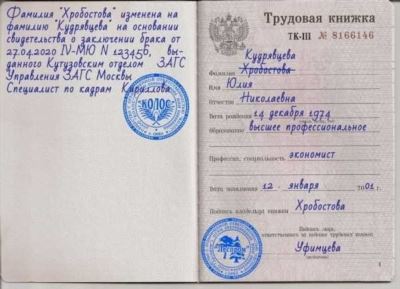 Фамилия "Хробостова" изменена на
фамилию "Кудрявцева" на основании
свидетельства о заключении брака от
27.04.2020 IV-МЮ N 123456, вы-
данного Кутузовским отделом ЗАГС
Управления ЗАГС Москвы
Специалист по кадрам Кириллова
КОЛОС
Трудовая книжка
ТК-III № 8166146
Кудрявцева
Фамилия Хробостова
Имя Юлия
Отчество Николаевна
Дата рождения 14 декабря 1974
Образование высшее профессиональное
Профессия, специальность экономист
Дата заполнения 12 января 2001 г.
Подпись владельца книжки Хробостова
Подпись лица,
ответственного за ведение трудовых книжек
Уфимцева